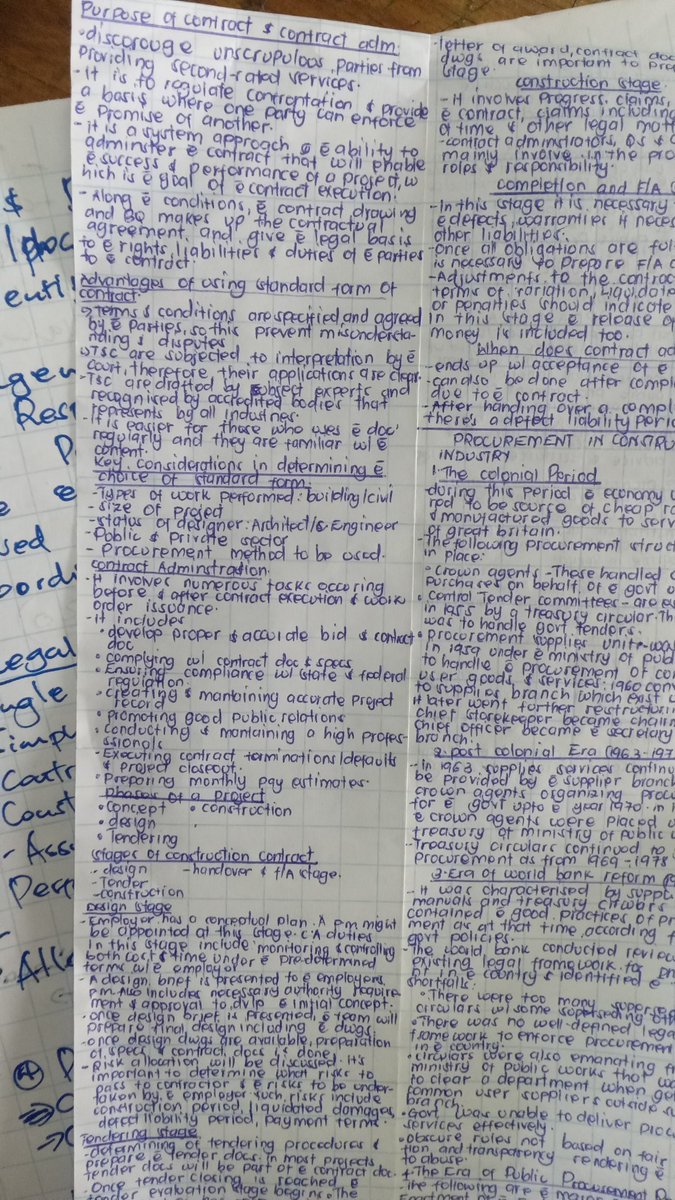 Purpose of contract & contract adm.
• discorouge unscrupulous parties from
providing second-rated services.
- it is to regulate confrontation & provide
a basis where one party can enforce
ē promise of another.
- it is a system approach & ē ability to
administer ē contract that will enable
ē success & performance of a project, w
hich is ē goal of ē contract execution.
- Along ē conditions, ē contract drawing
and BQ makes up the contractual
agreement and give ē legal basis
to ē rights, liabilities & duties of ē parties
to ē contract.
Advantages of using standard form of
contract.
Terms & conditions are specified and agreed
by ē parties, so this prevent misundersta-
nding & disputes
TSC are subjected to interpretation by ē
court, therefore their applications are clear.
- TSC are drafted by subject experts and
recognised by accredited bodies that
represents by all industries.
- it is easier for those who uses ē doc
regularly and they are familiar w/ ē
content.
Key considerations in determining ē
choice of standard form
- Types of work performed: building/civil
- size of project
- status of designer: Architect/& Engineer
- Public & Private sector
- Procurement method to be used.
Contract Adminstration.
- It involves numerous tasks occuring
before & after contract execution & work
order issuance.
- it includes
• develop proper & accurate bid & contract
doc
• complying w/ contract doc & specs
• Ensuring compliance w/ state & federal
regulation.
• creating & mantaining accurate project
record
• promoting good public relations
• conducting & mantaining a high profes-
ssionals
- Executing contract terminations/defaults
& project closeout.
• Preparing monthly pay estimates.
Phases of a project
• concept • construction
• design
• Tendering
Stages of construction contract
- design - handover & f/A stage.
- Tender
- construction
Design stage
- Employer has a conceptual plan. A p.m might
be appointed at this stage. C.A duties
in this stage include monitoring & controlling
both cost & time under ē predetermined
terms w/ ē employer
- A design brief is presented to ē employers
p.m. Also includes necessary authority require-
ment & approval to dvlp ē initial concept.
- once design brief is presented, ē team will
prepare final design including ē dwgs
- once design dwgs are available, preparation
of specs & contract docs is done.
- Risk allocation will be discussed. It's
important to determine what risks to
pass to contractor & ē risks to be under-
taken by ē employer such risks include
construction period, liquidated damages,
defect liability period, payment terms.
Tendering stage
- determining of tendering procedures &
prepare ē tender docs. In most projects
tender docs will be part of ē contract doc.
- Once tender closing is reached ē
tender evaluation stage begins. The
- letter of award, contract doc
dwgs are important to pro
stage.
construction stage
- It involves Progress claims,
ē contract, claims including
of time & other legal matt
- contract adminstrators, QS &
mainly involve in the pro
roles & responsibility.
Completion and F/A
- In this stage it is necessary
ē defects, warranties if neces
other liabilities.
- Once all obligations are ful
is necessary to prepare F/A
- Adjustments to the contrac
terms of variation, liquidate
or penalties should indicate
in this stage ē release of
money is included too.
When does contract ad
- ends up w/ acceptance of ē
- can also be done after compl
due to ē contract.
- After handing over a comple
there's a defect liability perio
PROCUREMENT IN CONSTRU
INDUSTRY
1. The colonial Period
- during this period ē economy
red to be source of cheap ra
& manufactured goods to serv
of great britain.
- The following procurement struct
in place:
• crown agents - These handled
purchases on behalf of ē govt
• central Tender committees - are es
in 1955 by a treasury circular. Th
was to handle govt tenders.
• procurement supplies unite - wa
in 1959 under ē ministry of publ
to handle ē procurement of co
user goods & services. 1960 con
to supplies branch which exist
it later went further restructurin
chief storekeeper became chairm
chief officer became ē secretary
branch.
2. post colonial Era (1963-197
- In 1963, supplies services continu
be provided by ē supplier branch
crown agents organizing procu
for ē govt upto ē year 1970. in
ē crown agents were placed u
treasury of ministry of public
Treasury circulars continued to
Procurement as from 1969-1978
3. Era of world bank reform
- It was characterised by suppli
manuals and treasury circulars
contained ē good practices of pr
ment as at that time, according
govt policies.
- The world bank conducted review
existing legal framework for pr
nt in ē country & identified ē
shortfalls:
• There were too many supersed
circulars w/ some superseding
• There was no well-defined legal
framework to enforce procuremen
in ē country.
• circulars were also emanating fr
ministry of public works that wa
to clear a department when ge
common user suppliers outside su
branch.
• Govt was unable to deliver proc
services effectively.
• obscure rules not based on fair
tion, and transparency rendering ē
to abuse.
4. The Era of Public Procurement
- The following are ē main